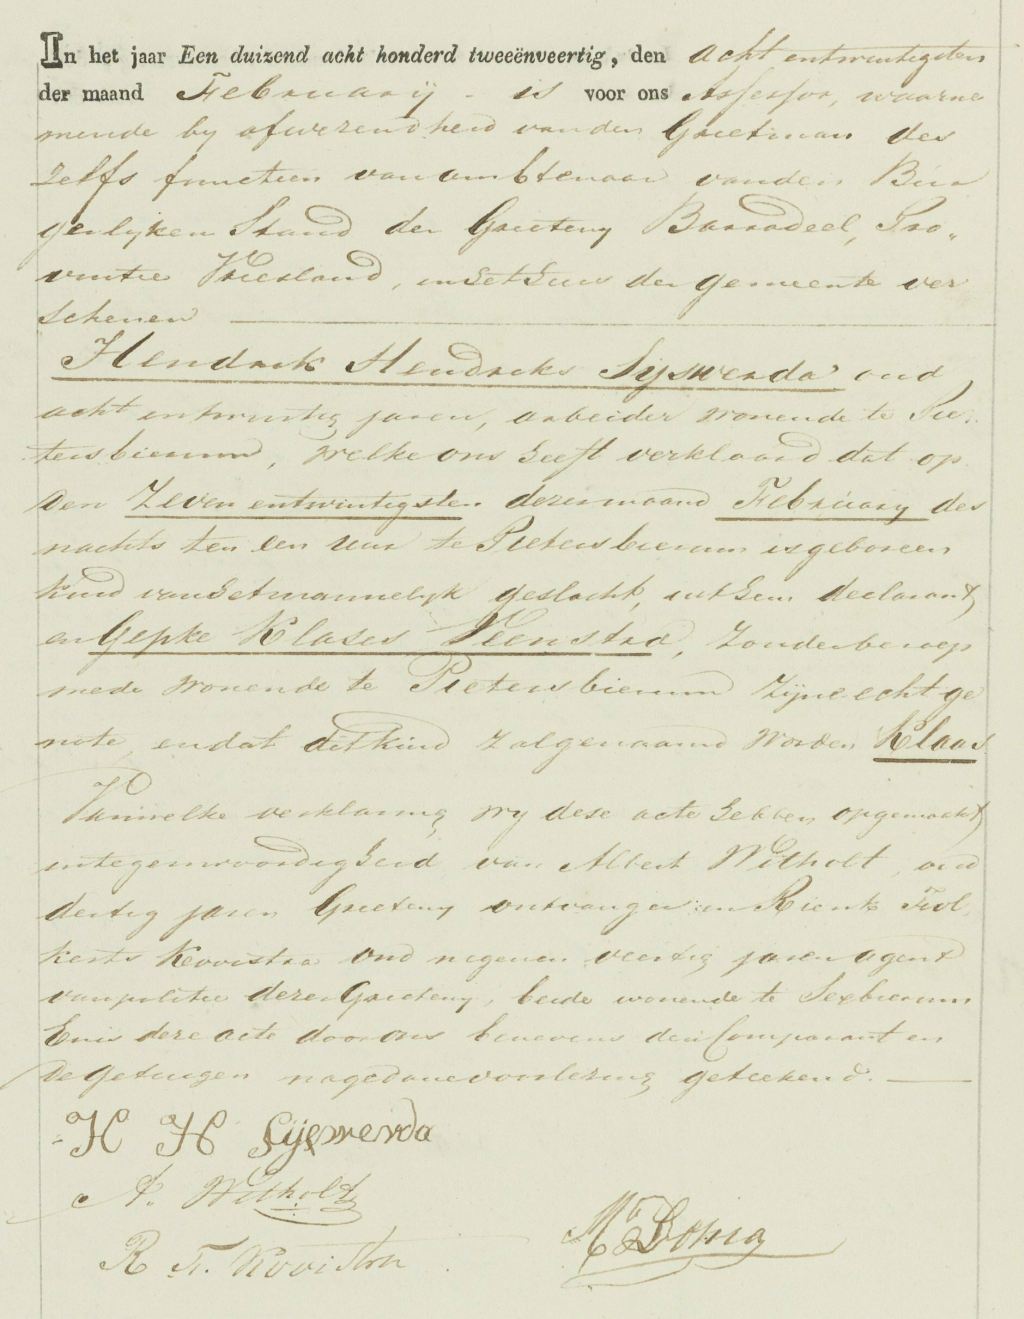 In het jaar Een duizend acht honderd tweeënveertig, den acht entwintigsten
der maand Februarij - is voor ons Assessor, waarne
mende by afwezendheid van den Grietman des
zelfs functien van ambtenaar van den Bur
gerlyken Stand der Grieteny Barradeel, Pro„
vintie Vriesland, in het huis der gemeente ver
schenen
Hendrik Hendriks Sijswerda oud
acht entwintig jaren, arbeider wonende te Pie„
tersbierum, welke ons heeft verklaard dat op
den Zeven entwintigsten dezer maand February des
nachts ten een uur te Pietersbierum is geboren
kind van het mannelyk geslacht, uit hem declarant,
en Gepke Klases Veenstra, zonder beroep
mede wonende te Pietersbierum zijne echtge
note, en dat dit kind zal genaamd worden Klaas
Van welke verklaring wy deze acte hebben opgemaakt,
in tegenwoordigheid van Albert Witholt, oud
dertig jaren Grieteny ontvanger en Rienk Fol
kerts Kooistra oud negenen veertig jaren agent
van politie dezer Grieteny, beide wonende te Sexbierum
En is deze acte door ons benevens den Comparant en
de getuigen na gedane voorlezing geteekend.
H H Sijswerda
A. Witholt
R F. Kooistra